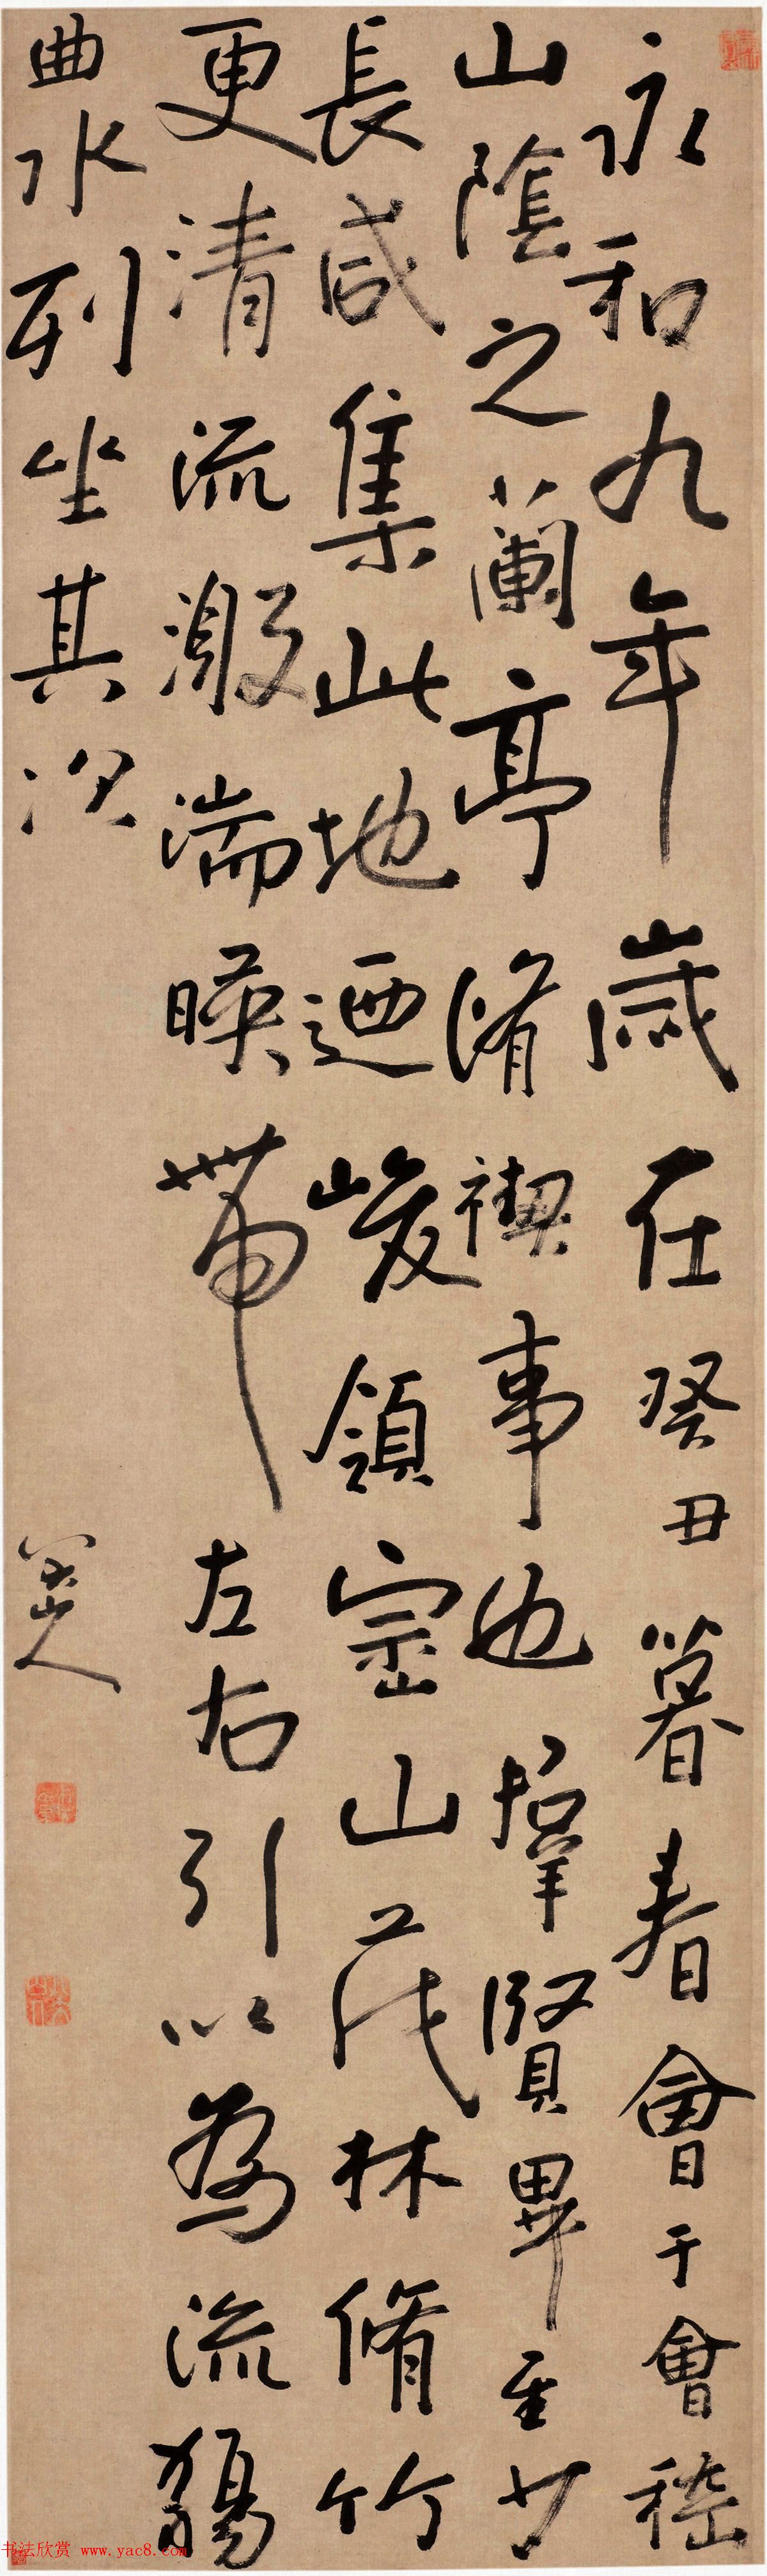 永和九年歲在癸丑暮春會于會稽
山陰之蘭亭脩禊事也群賢畢至少
長咸集此地迺峻領崇山茂林脩竹
更清流激湍暎帶左右引以為流觴
曲水列坐其次
八大山人
书法欣赏 www.yac8.com